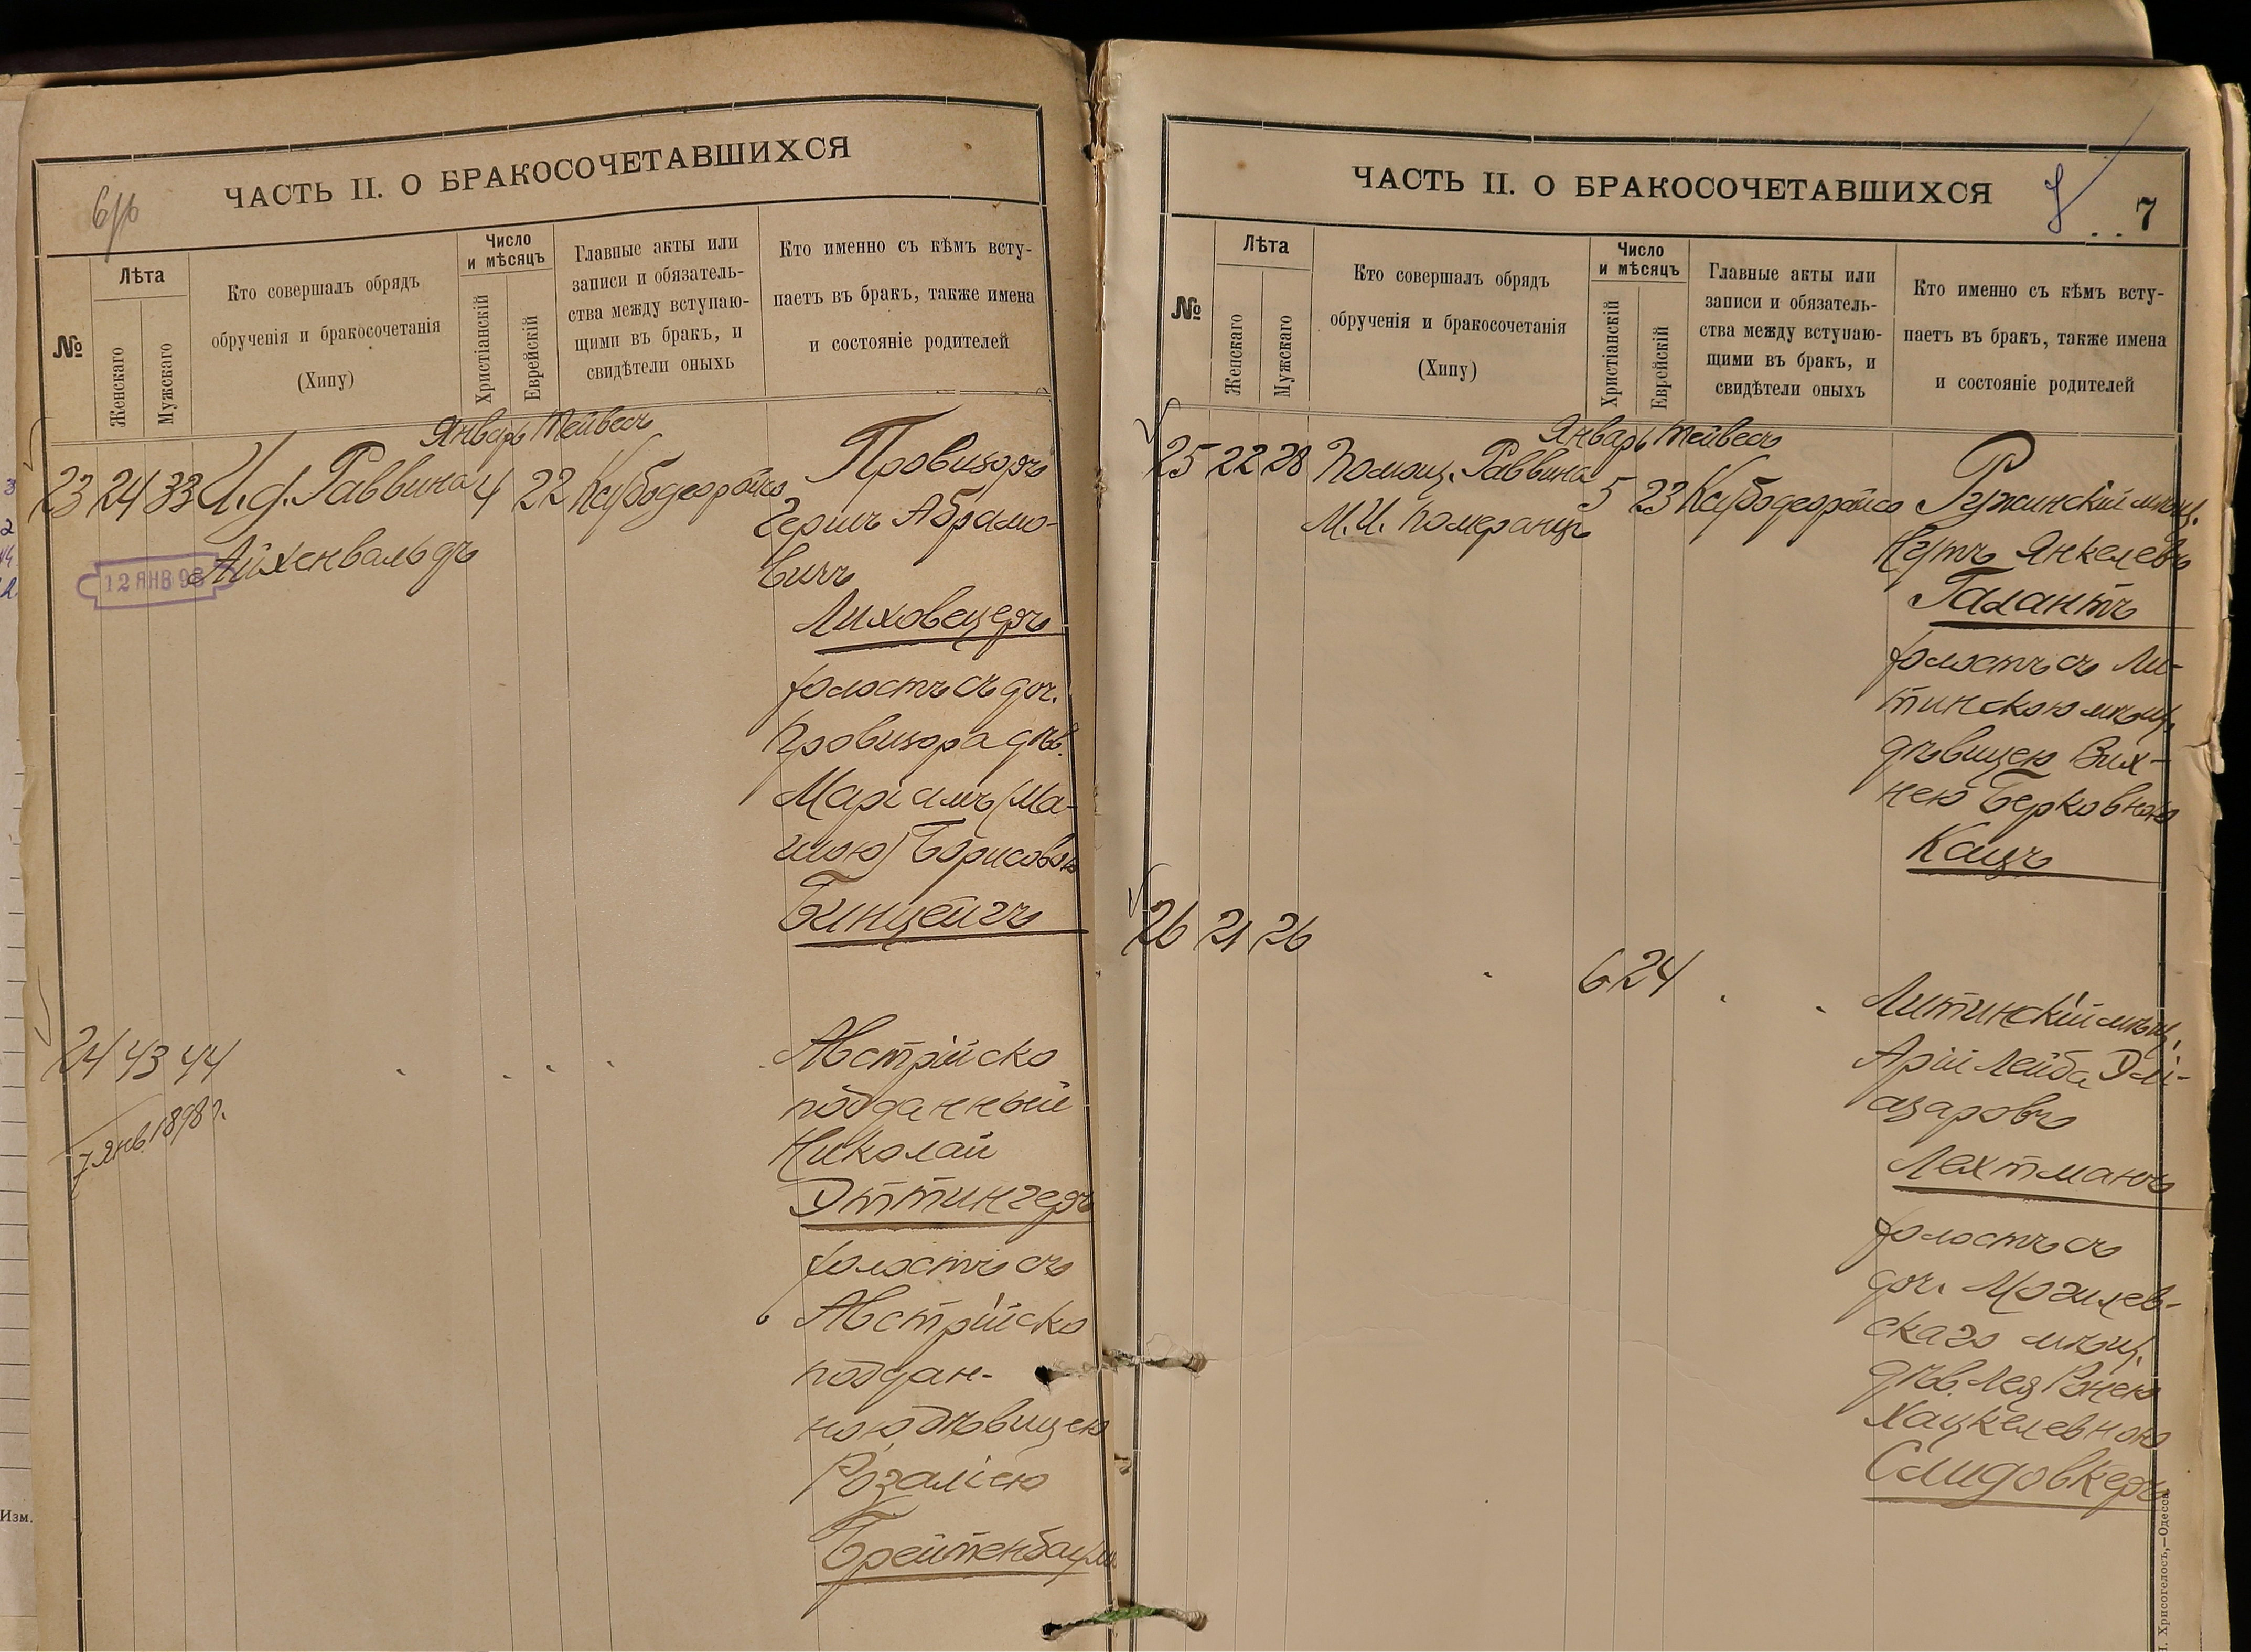 ЧАСТЬ II. О БРАКОСОЧЕТАВШИХСЯ
№
Лѣта
Женскаго
Мужскаго
Кто совершалъ обрядъ
обрученія и бракосочетанія
(Хипу)
Число
и мѣсяцъ
Христіанскій
Еврейскій
Главные акты или
записи и обязатель-
ства между вступаю-
щими въ бракъ, и
свидѣтели оныхъ
Кто именно съ кѣмъ всту-
паетъ въ бракъ, также имена
и состояніе родителей
Январь Тейвесъ
23 24 33 И. д. Раввина 4 22 Ксубодеорайсо
Айхенвальдъ
12 ЯНВ 98
Провизоръ
Гершъ Абрамо-
вичъ
Лиховецеръ
холостъ съ доч.
провизора дѣв.
Маріамъ (Ма-
шою) Борисовою
Бинцейгъ
24 43 44
7 янв 1898 г.
Австрійско
подданный
Николай
Эттингеръ
холостъ съ
Австрійско
поддан-
ною дѣвицею
Розаліею
Брейтенбаумъ
Изм.
ЧАСТЬ II. О БРАКОСОЧЕТАВШИХСЯ
7
№
Лѣта
Женскаго
Мужскаго
Кто совершалъ обрядъ
обрученія и бракосочетанія
(Хипу)
Число
и мѣсяцъ
Христіанскій
Еврейскій
Главные акты или
записи и обязатель-
ства между вступаю-
щими въ бракъ, и
свидѣтели оныхъ
Кто именно съ кѣмъ всту-
паетъ въ бракъ, также имена
и состояніе родителей
Январь Тейвесъ
25 22 28 Помощ. Раввина 5 23 Ксубодеорайсо
М. И. Померанцъ
Ружинскій мѣщ.
Нутъ Янкелевъ
Галантъ
холостъ съ Ли-
тинскою мѣщ.
дѣвицею Вих-
нею Берковною
Кацъ
26 21 26 6 24
Литинскій мѣщ.
Арій Лейба Элі-
азаровъ
Лехтманъ
холостъ съ
доч. Могилев-
скаго мѣщ.
дѣв. Лея Рэнею
Хацкелевною
Слидовкеръ
Хрисогелосъ,—Одесса